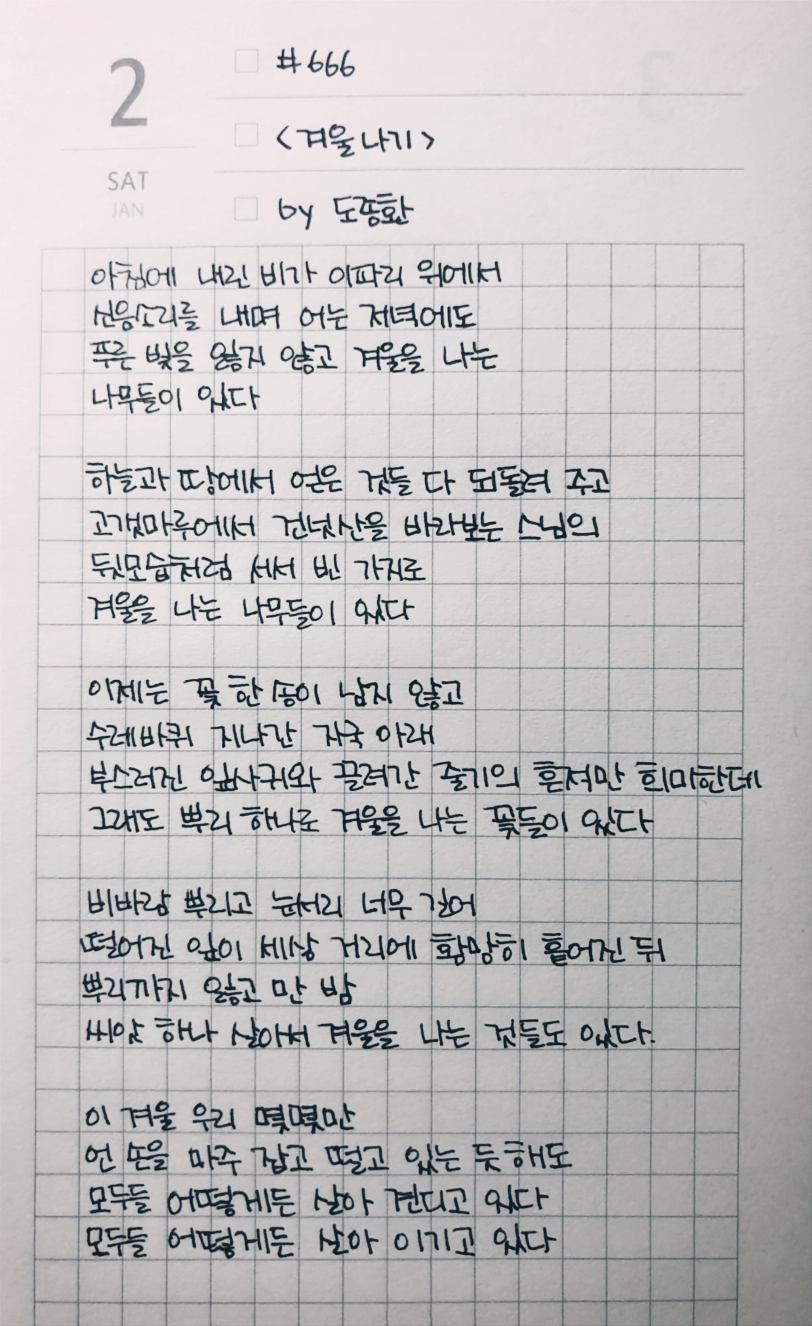 2
SAT
JAN
#666
<겨울나기>
by 도종환
아침에 내린 비가 이파리 위에서
신음소리를 내며 어는 저녁에도
푸른 빛을 잃지 않고 겨울을 나는
나무들이 있다
하늘과 땅에서 얻은 것들 다 되돌려 주고
고갯마루에서 건넛산을 바라보는 스님의
뒷모습처럼 서서 빈 가지로
겨울을 나는 나무들이 있다
이제는 꽃 한 송이 남지 않고
수레바퀴 지나간 자국 아래
부스러진 잎사귀와 끌려간 줄기의 흔적만 희미한데
그래도 뿌리 하나로 겨울을 나는 꽃들이 있다
비바람 뿌리고 눈서리 너무 길어
떨어진 잎이 세상 거리에 황망히 흩어진 뒤
뿌리까지 잃고 만 밤
씨앗 하나 살아서 겨울을 나는 것들도 있다.
이 겨울 우리 몇몇만
언 손을 마주 잡고 떨고 있는 듯해도
모두들 어떻게든 살아 견디고 있다
모두들 어떻게든 살아 이기고 있다